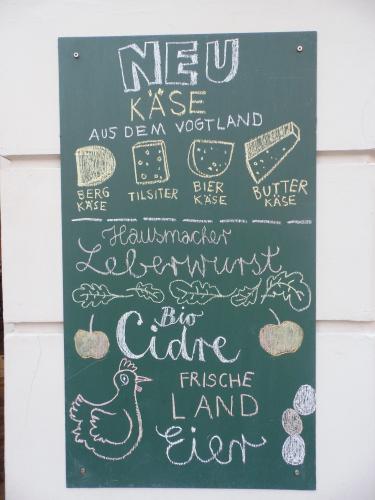 NEU
KÄSE
AUS DEM VOGTLAND
BERG KÄSE
TILSITER
BIER KÄSE
BUTTER KÄSE
Hausmacher
Leberwurst
Bio
Cidre
FRISCHE
LAND
Eier